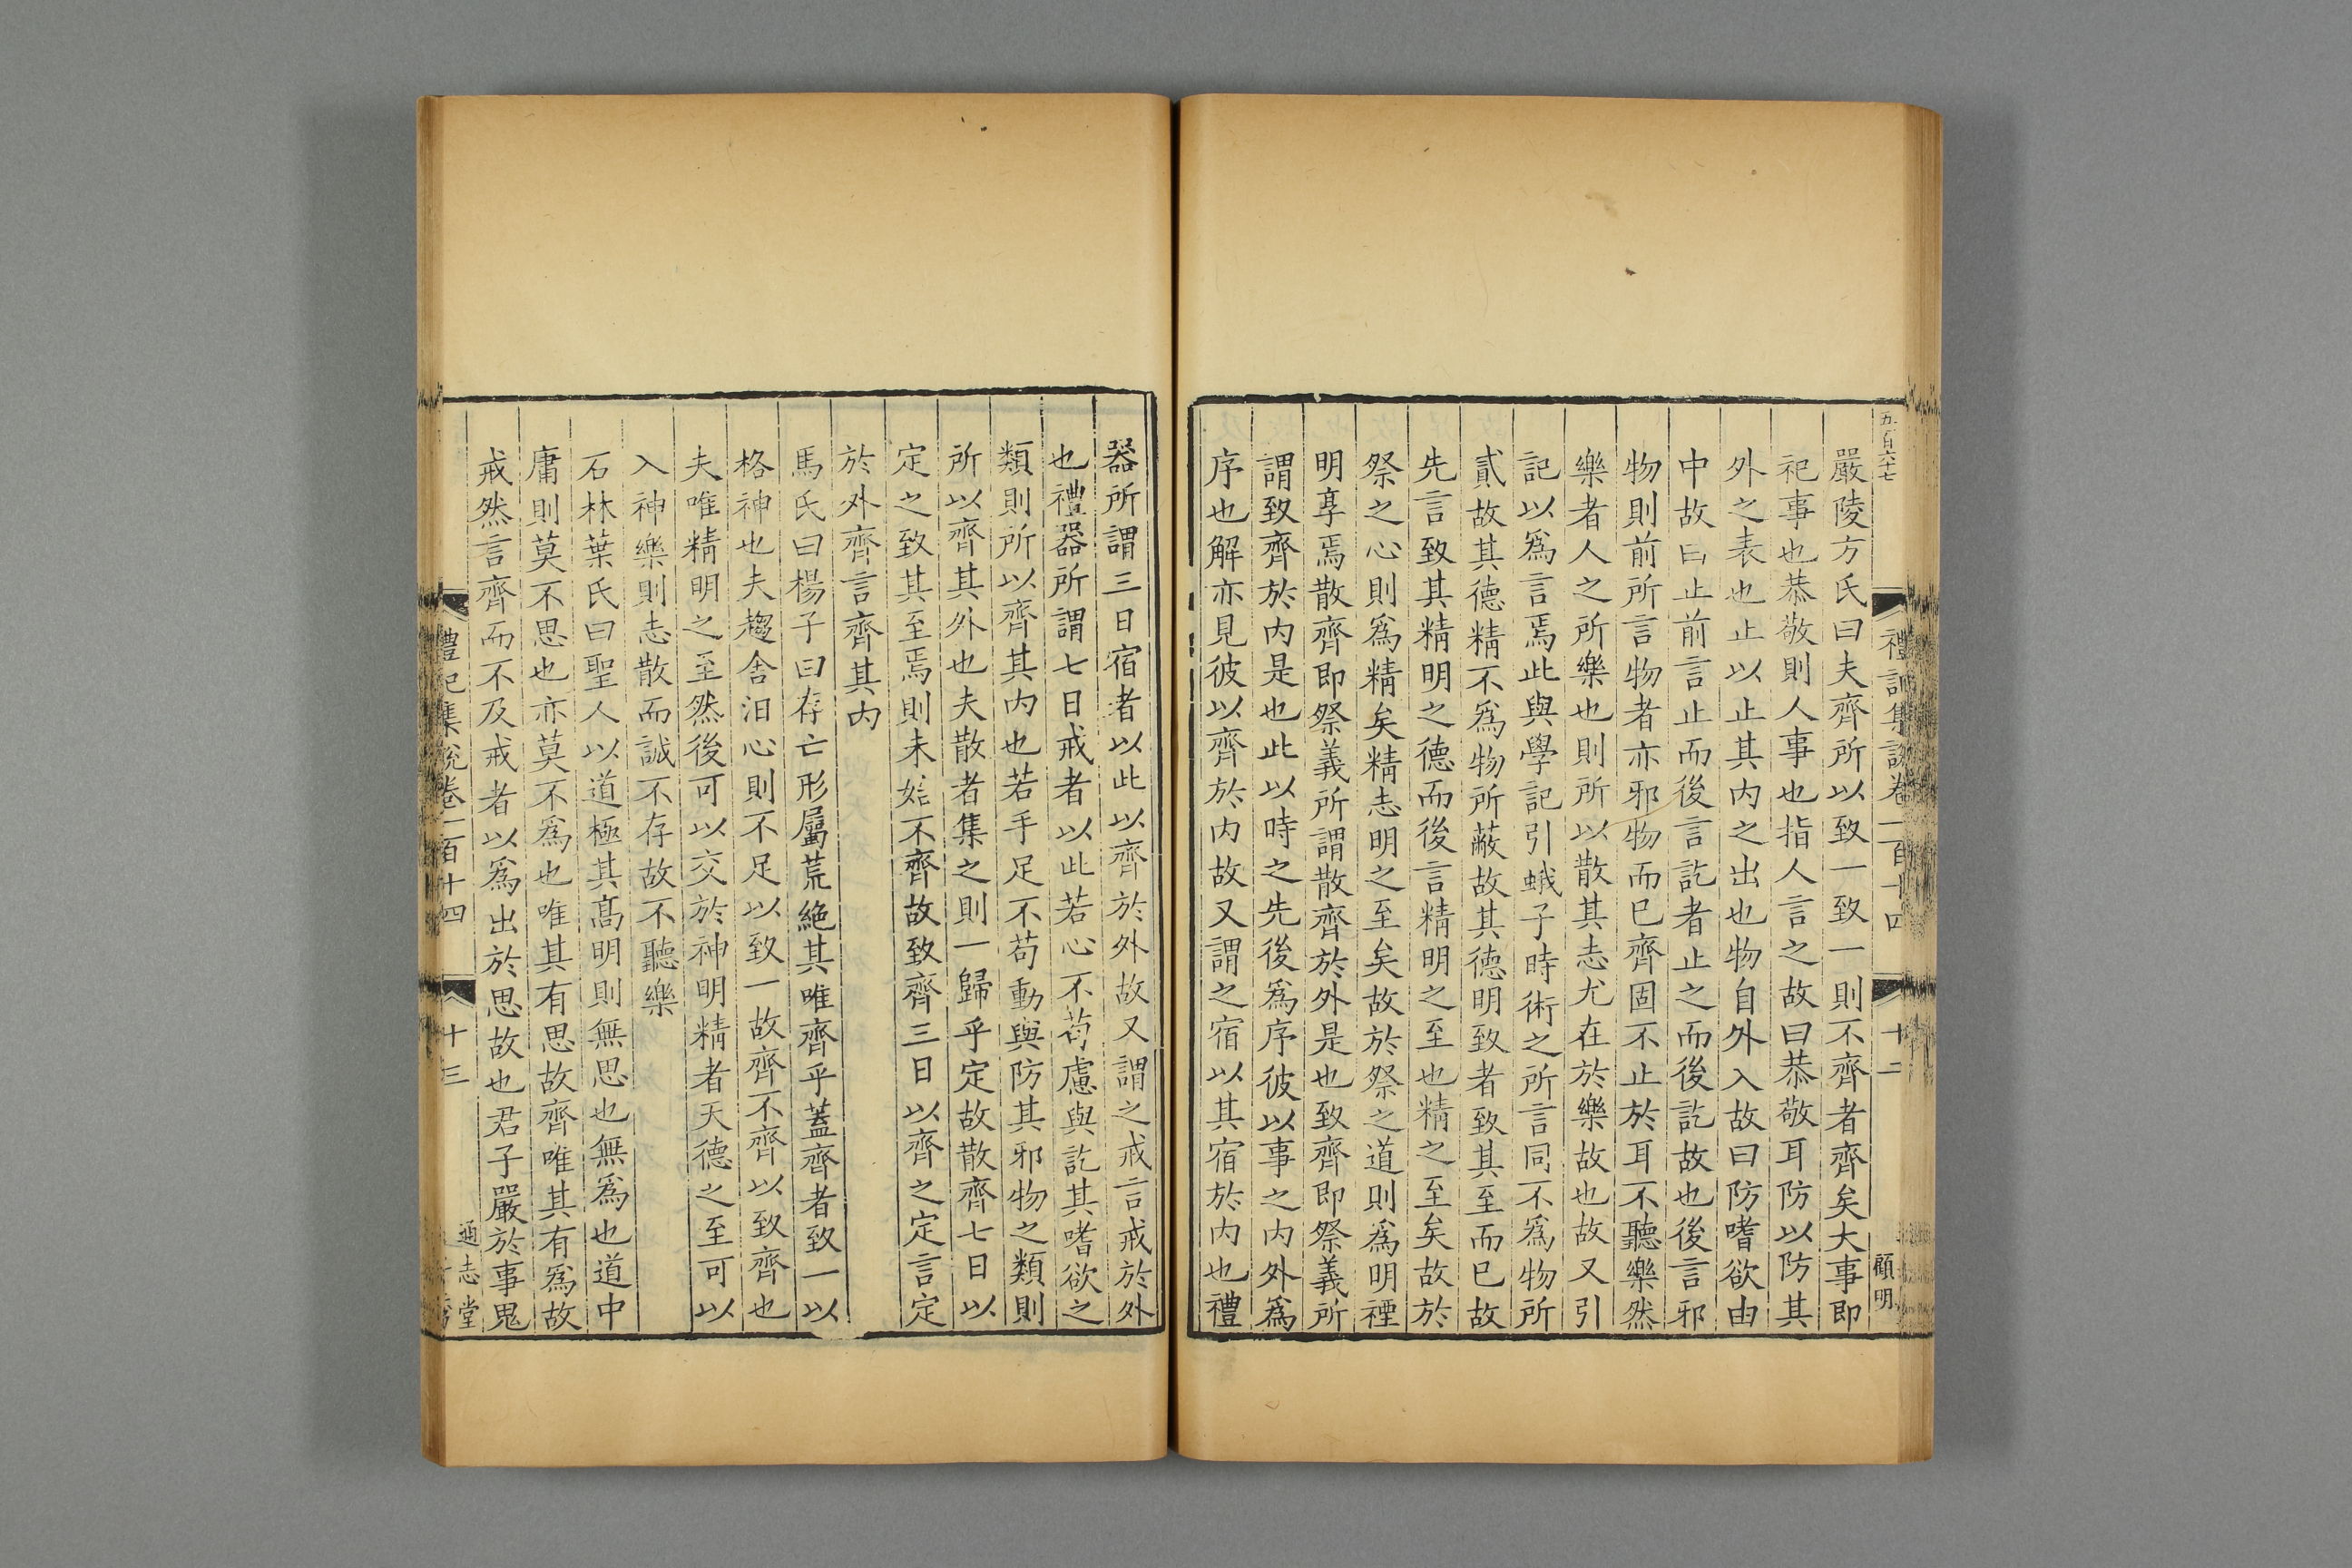 五百六十七
禮記集說卷一百十四
十二
顧明
嚴陵方氏曰夫齊所以致一致一則不齊者齊矣大事即
祀事也恭敬則人事也指人言之故曰恭敬耳防以防其
外之表也止以止其内之出也物自外入故曰防嗜欲由
中故曰止前言止而後言訖者止之而後訖故也後言邪
物則前所言物者亦邪物而已齊固不止於耳不聽樂然
樂者人之所樂也則所以散其志尤在於樂故也故又引
記以爲言焉此與學記引蛾子時術之所言同不爲物所
貳故其德精不爲物所蔽故其德明致者致其至而已故
先言致其精明之德而後言精明之至也精之至矣故於
祭之心則爲精矣精志明之至矣故於祭之道則爲明禋
明享焉散齊即祭義所謂散齊於外是也致齊即祭義所
謂致齊於内是也此以時之先後爲序彼以事之内外爲
序也解亦見彼以齊於内故又謂之宿以其宿於内也禮
器所謂三日宿者以此以齊於外故又謂之戒言戒於外
也禮器所謂七日戒者以此若心不苟慮與訖其嗜欲之
類則所以齊其内也若手足不苟動與防其邪物之類則
所以齊其外也夫散者集之則一歸乎定故散齊七日以
定之致其至焉則未始不齊故致齊三日以齊之定言定
於外齊言齊其内
馬氏曰楊子曰存亡形屬荒絶其唯齊乎蓋齊者致一以
格神也夫趨舍汨心則不足以致一故齊不齊以致齊也
夫唯精明之至然後可以交於神明精者天德之至可以
入神樂則志散而誠不存故不聽樂
石林葉氏曰聖人以道極其高明則無思也無爲也道中
庸則莫不思也亦莫不爲也唯其有思故齊唯其有爲故
戒然言齊而不及戒者以爲出於思故也君子嚴於事鬼
禮記集說卷一百十四
十三
通志堂